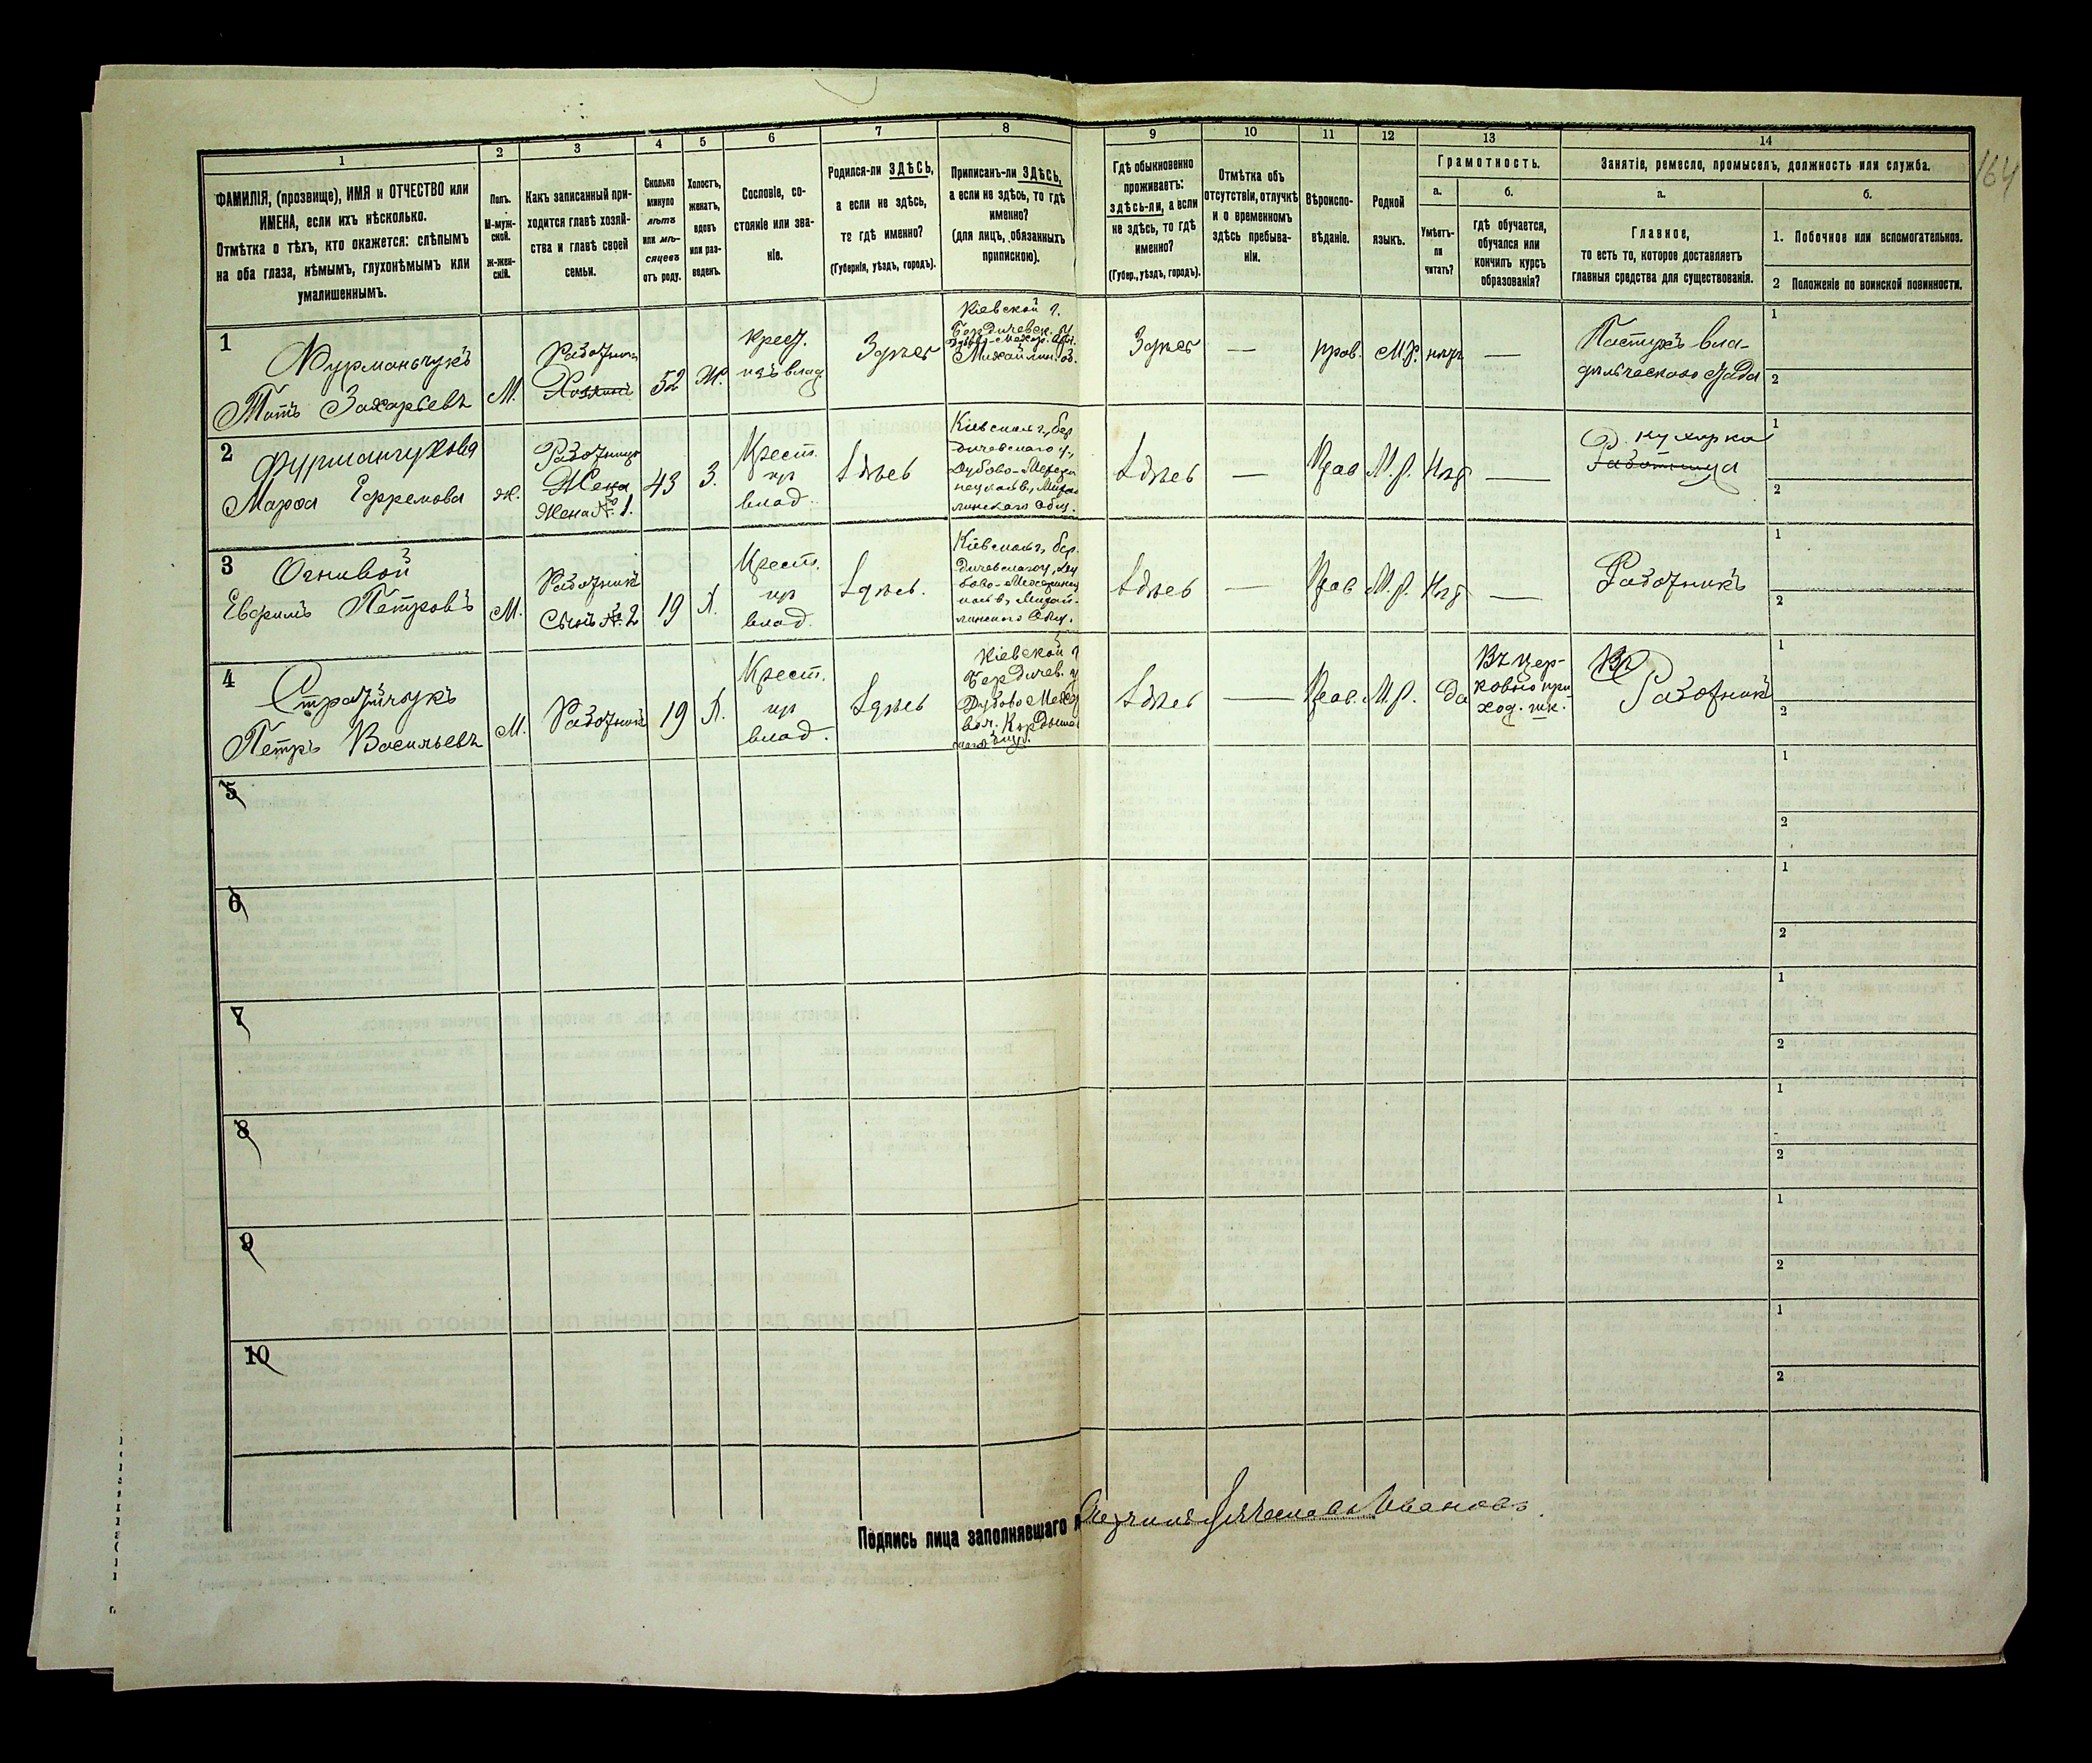 164
1 2 3 4 5 6 7 8 9 10 11 12 13 14
ФАМИЛІЯ, (прозвище), ИМЯ и ОТЧЕСТВО или
ИМЕНА, если ихъ нѣсколько.
Отмѣтка о тѣхъ, кто окажется: слѣпымъ
на оба глаза, нѣмымъ, глухонѣмымъ или
умалишеннымъ.
Полъ.
М-муж-
ской.
Ж-жен-
скій.
Какъ записанный при-
ходится главѣ хозяй-
ства и главѣ своей
семьи.
Сколько
минуло
лѣтъ
или мѣ-
сяцевъ
отъ роду.
Холостъ,
женатъ,
вдовъ
или раз-
веденъ.
Сословіе, со-
стояніе или зва-
ніе.
Родился-ли ЗДѢСЬ,
а если не здѣсь,
то гдѣ именно?
(Губернія, уѣздъ, городъ).
Приписанъ-ли ЗДѢСЬ,
а если не здѣсь, то гдѣ
именно?
(для лицъ, обязанныхъ
припискою).
Гдѣ обыкновенно
проживаетъ:
здѣсь-ли, а если
не здѣсь, то гдѣ
именно?
(Губер., уѣздъ, городъ).
Отмѣтка объ
отсутствіи, отлучкѣ
и о временномъ
здѣсь пребыва-
ніи.
Вѣроиспо-
вѣданіе.
Родной
языкъ.
Грамотность.
а.
Умѣетъ-
ли
читать?
б.
гдѣ обучается,
обучался или
кончилъ курсъ
образованія?
Занятіе, ремесло, промыселъ, должность или служба.
а.
Главное,
то есть то, которое доставляетъ
главныя средства для существованія.
б.
1. Побочное или вспомогательное.
2 Положеніе по воинской повинности.
1
Фурманчукъ
Титъ Захарьевъ
М.
Работникъ
Хозяинъ
52
Ж.
крест.
изъ влад
Здѣсь
Кіевской г.
Бердичевск. у
Михайлин. об.
Здѣсь
—
прав.
М.Р.
нѣтъ
—
Пастухъ вла-
дѣльческаго стада
1
2
2
Фурманчукова
Марфа Ефремова
ж.
Работница
Жена
Жена № 1.
43
З.
Крест.
из
влад.
Здѣсь
Кіевской г., Бер
дичевскаго у.,
Дубово-Межери
линскаго Общ.
Здѣсь
—
Прав
М.р.
Нѣт
—
кухарка
Работница
1
2
3
Огнивой
Евфимъ Петровъ
М.
Работникъ
Сынъ № 2
19
Х.
Крест.
из
влад.
Здѣсь.
Кіевской г., Бер-
дичевскаго у., Ду
бово-Межерин
линского Общ.
Здѣсь
—
Прав
М.р.
Нѣт
—
Работникъ
1
2
4
Петръ Васильевъ
М.
Работникъ
19
Х.
Крест.
из
влад.
Здѣсь
Кіевской г
Бердичев. у
Дубово Межер
Здѣсь
—
Прав.
М.Р.
Да
Въ цер-
ковно при
ход. шк.
Работникъ
1
2
5
1
2
6
1
2
7
1
2
8
1
2
9
1
2
10
1
2
Подпись лица заполнявшаго
Ивановъ.